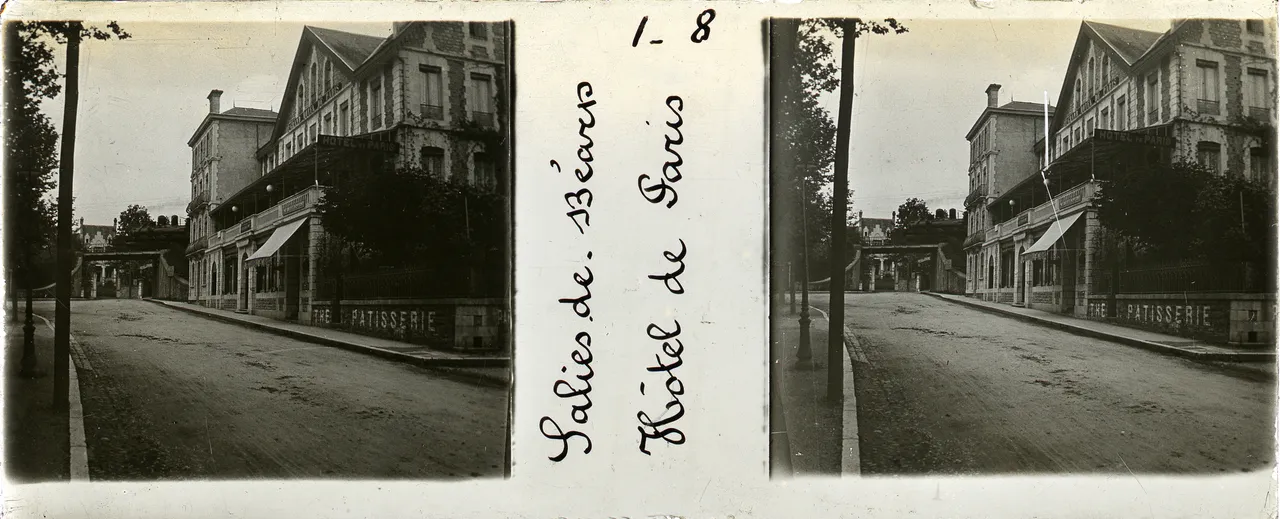 HOTEL DE PARIS
THE PATISSERIE
Salies-de-Béarn
Hôtel de Paris
1-8
HOTEL DE PARIS
THE PATISSERIE